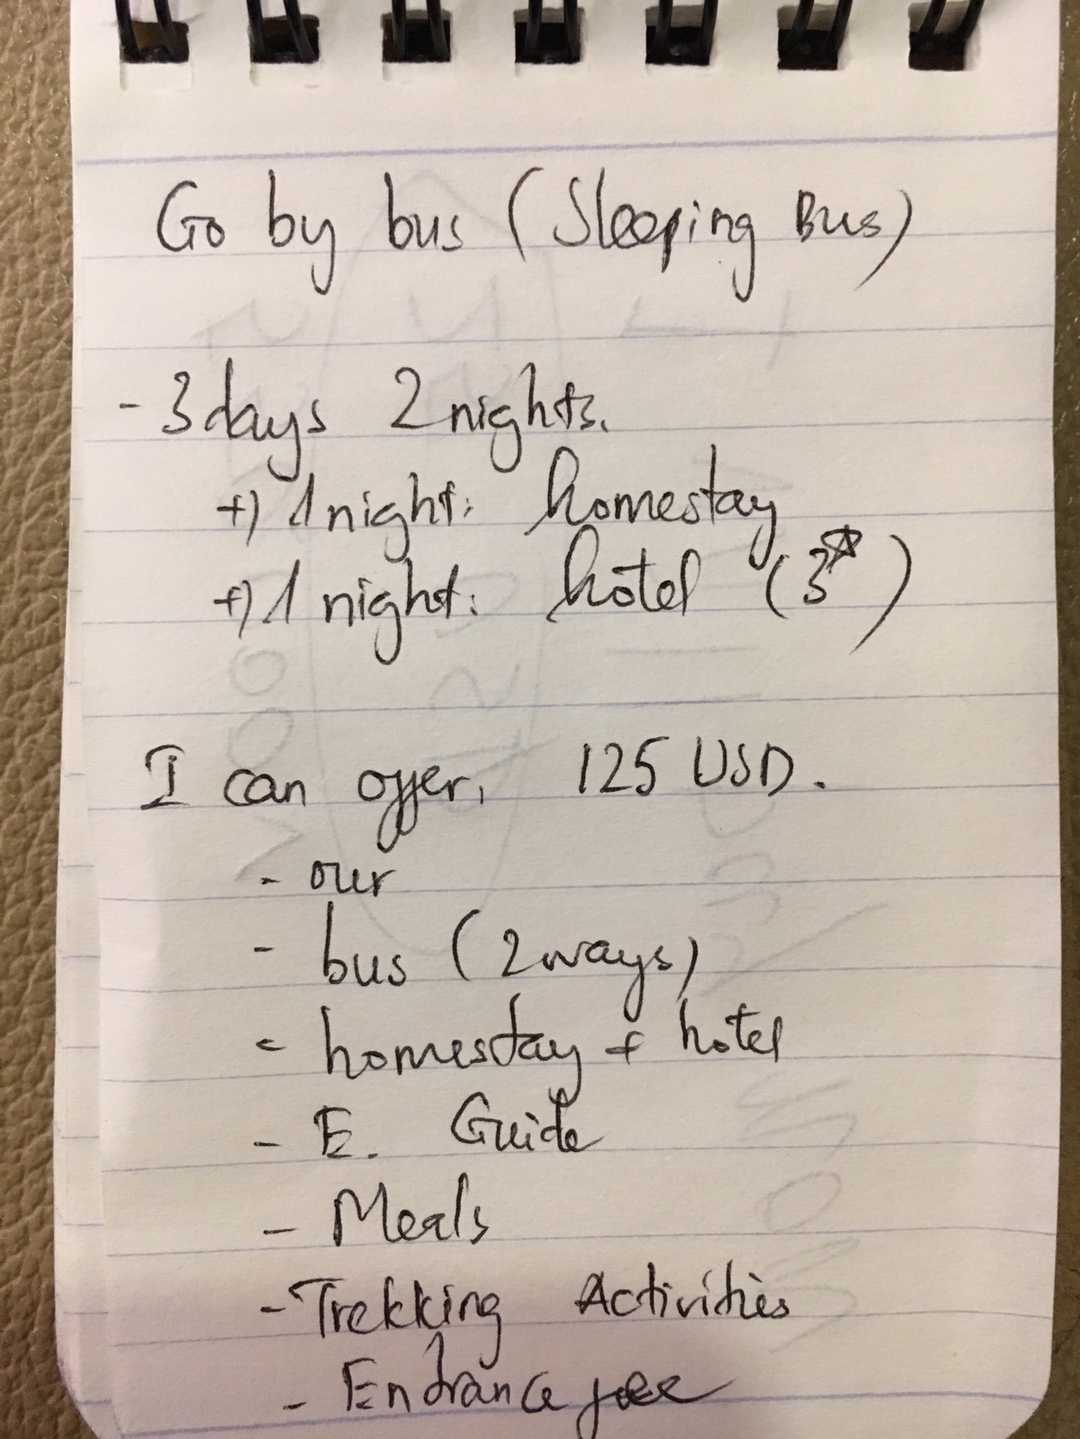 Go by bus (Sleeping Bus)
- 3 days 2 nights.
+) 1 night: homestay
+) 1 night: hotel (3☆)
I can offer, 125 USD.
- our
- bus (2 ways)
- homestay + hotel
- E. Guide
- Meals
- Trekking Activities
- Entrance fee